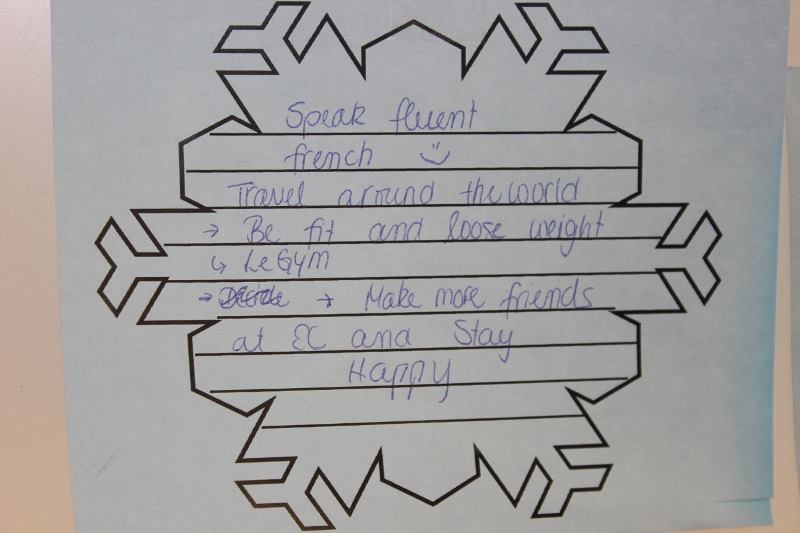 Speak fluent
french
Travel around the world
→ Be fit and loose weight
↳ Le Gym
→ → Make more friends
at EC and Stay
Happy